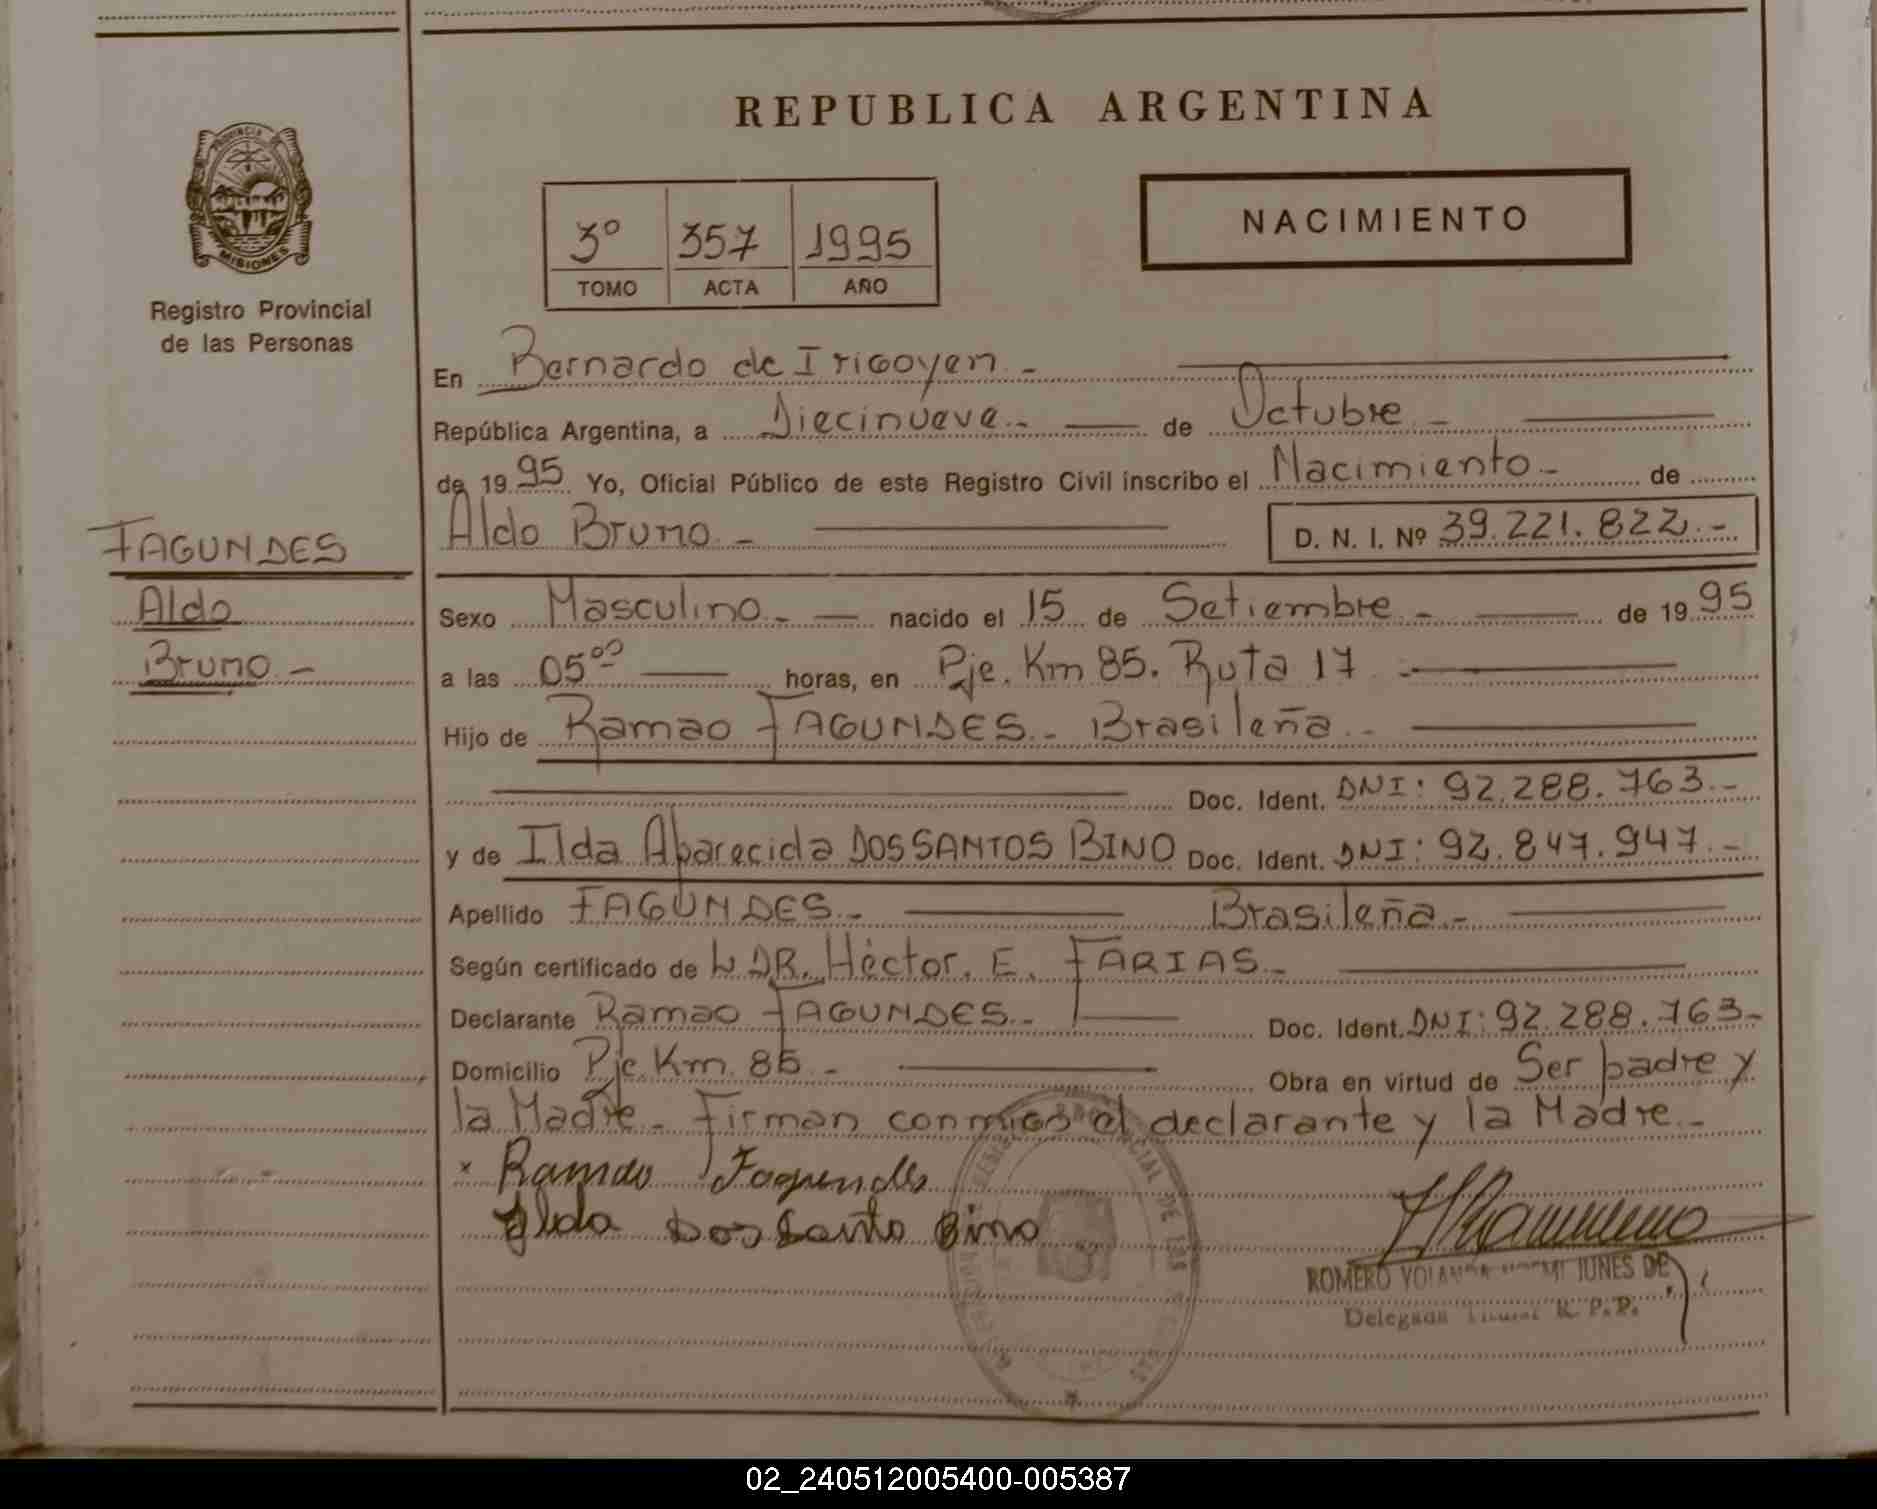 REPUBLICA ARGENTINA
PROVINCIA
MISIONES
Registro Provincial
de las Personas
3º 357 1995
TOMO ACTA AÑO
NACIMIENTO
En Bernardo de Irigoyen.-
República Argentina, a Diecinueve.- de Octubre.-
de 1995 Yo, Oficial Público de este Registro Civil inscribo el Nacimiento.- de
FAGUNDES
Aldo
Bruno.-
Aldo Bruno.- D. N. I. Nº 39.221.822.-
Sexo Masculino.- nacido el 15 de Setiembre.- de 1995
a las 05⁰⁰ horas, en Pje. Km 85. Ruta 17.-
Hijo de Ramao FAGUNDES.- Brasileña.-
Doc. Ident. DNI: 92.288.763.-
y de Ilda Aparecida DOS SANTOS BINO Doc. Ident. DNI: 92.847.947.-
Apellido FAGUNDES.- Brasileña.-
Según certificado de DR. Héctor. E. FARIAS.-
Declarante Ramao FAGUNDES.- Doc. Ident. DNI: 92.288.763-
Domicilio Pje. Km. 85.- Obra en virtud de Ser padre y
la Madre.- Firman conmigo el declarante y la Madre.-
x Ramao Fagundes
Ilda Dos Santo Bino
ROMERO YOLANDA NUNES DE
Delegada R. P. P.
02_240512005400-005387